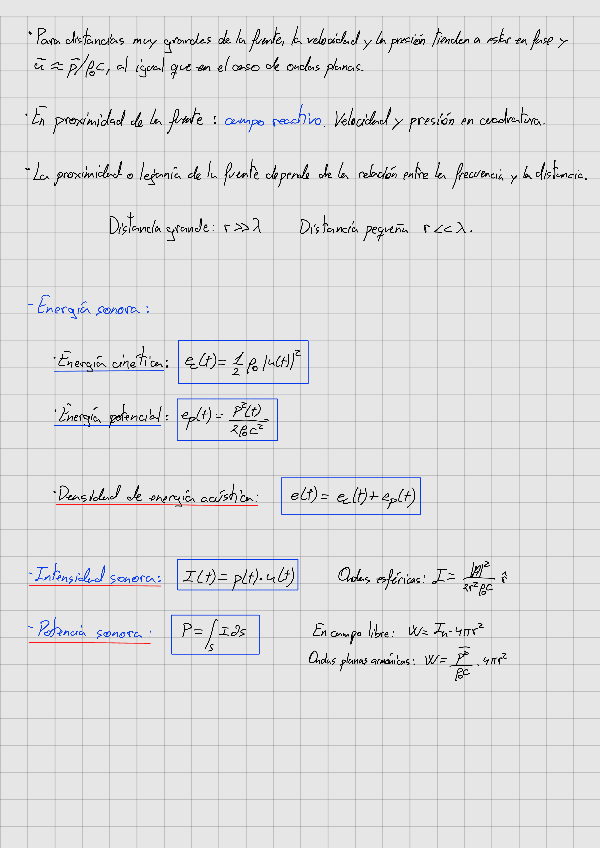 · Para distancias muy grandes de la fuente, la velocidad y la presión tienden a estar en fase y
ū ≈ p̄/ρ₀c, al igual que en el caso de ondas planas.
· En proximidad de la fuente : campo reactivo. Velocidad y presión en cuadratura.
· La proximidad o lejanía de la fuente depende de la relación entre la frecuencia y la distancia.
Distancia grande: r >> λ Distancia pequeña r << λ.
- Energía sonora:
· Energía cinética: e_c(t) = 1/2 ρ₀ |u(t)|²
· Energía potencial: e_p(t) = p²(t)/2ρ₀c²
· Densidad de energía acústica: e(t) = e_c(t) + e_p(t)
- Intensidad sonora: I(t) = p(t) · u(t) Ondas esféricas: I = |A|²/2r²ρ₀c r̂
- Potencia sonora: P = ∫_S I ds En campo libre: W = I_n · 4πr²
Ondas planas armónicas: W = p̄²/ρ₀c · 4πr²